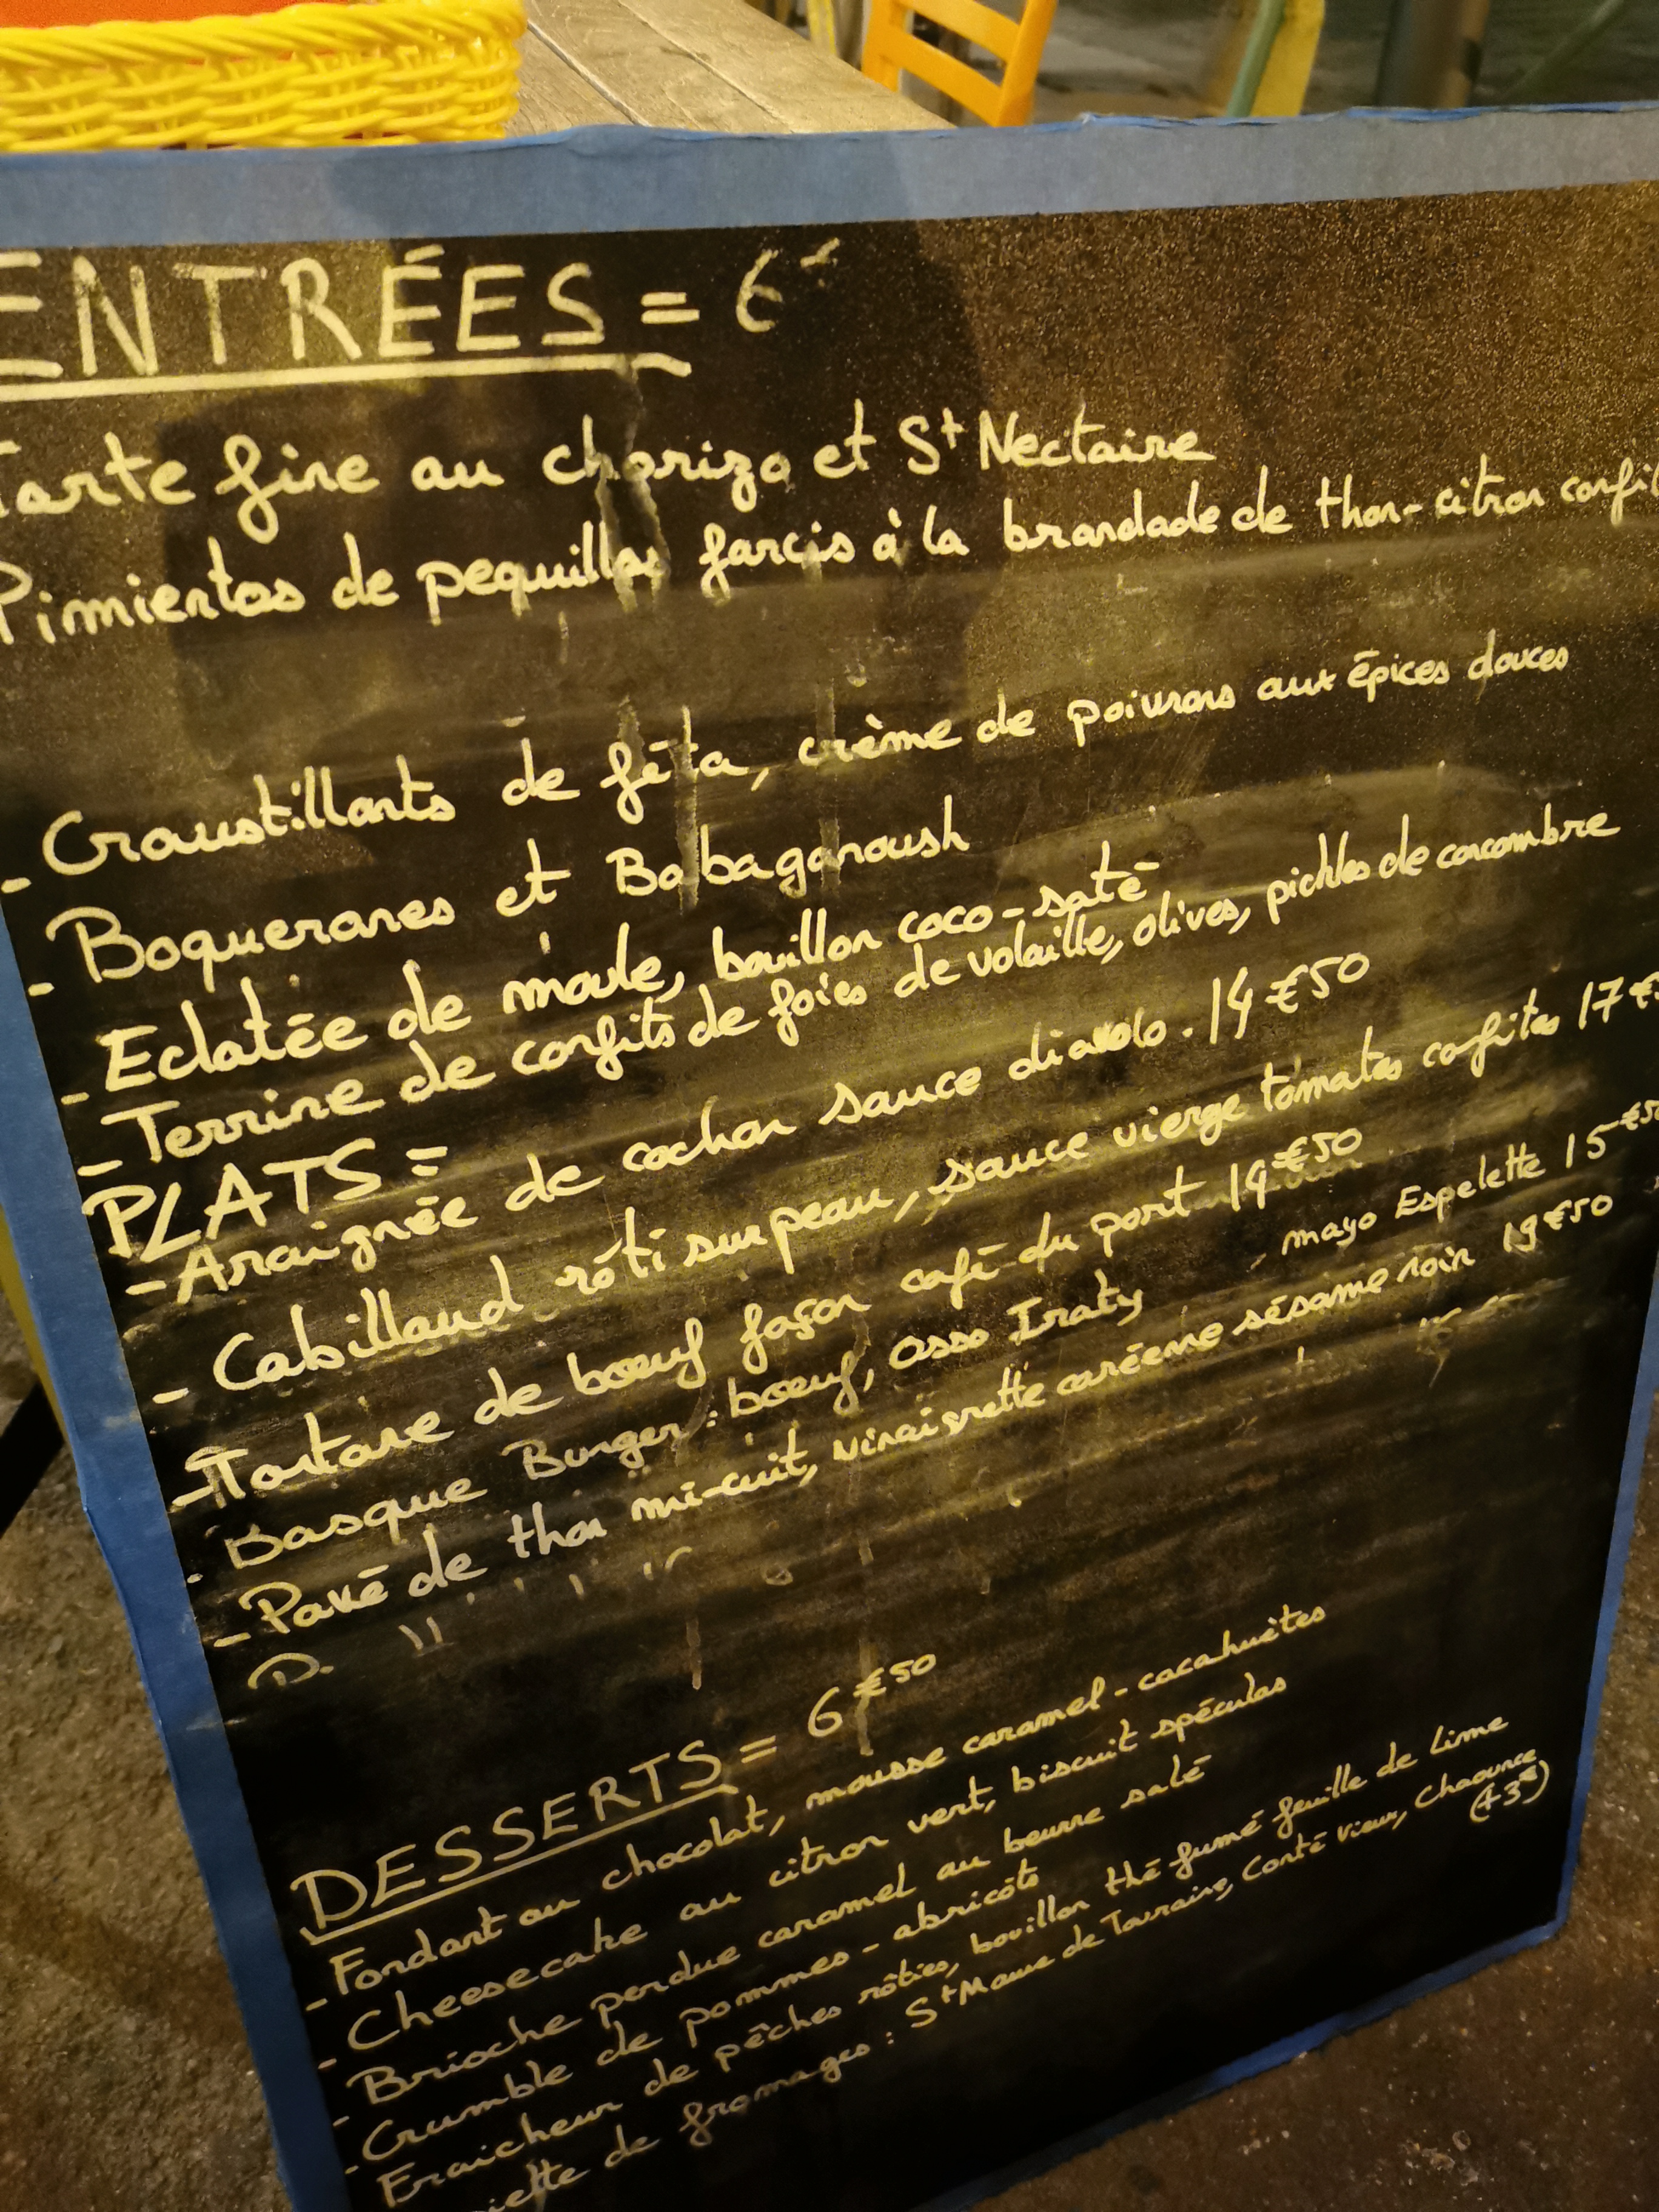 ENTRÉES = 6
Tarte fine au chorizo et St Nectaire
Pimientos de pequillos farcis à la brandade de thon-citron confit
- Croustillants de féta, crème de poivrons aux épices douces
- Boquerones et Babaganoush
- Eclatée de moule, bouillon coco-saté
- Terrine de confits de foies de volaille, olives, pickles de concombre
PLATS =
- Araignée de cochon sauce diavolo . 14€50
- Cabillaud rôti sur peau, sauce vierge tomates confites 17€
- Tartare de bœuf façon café du port 19€50
- Basque Burger : bœuf, osso Iraty , mayo Espelette 15€50
- Pavé de thon mi-cuit, vinaigrette coréenne sésame noir 19€50
DESSERTS = 6€50
- Fondant au chocolat, mousse caramel-cacahuètes
- Cheesecake au citron vert, biscuit spéculos
- Brioche perdue caramel au beurre salé
- Crumble de pommes-abricots
Fraicheur de pêches rôties, bouillon thé fumé feuille de Lime
iette de fromages : St Maure de Touraine, Conté vieux, Chaource
(+3€)